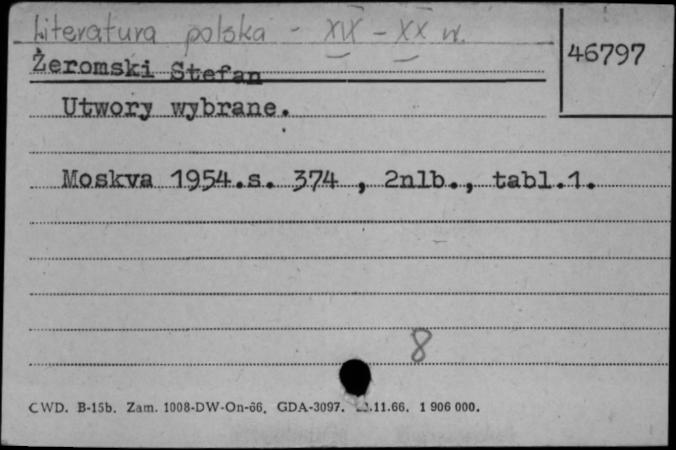 Literatura polska - XIX - XX w.
46797
Żeromski Stefan
Utwory wybrane.
Moskva 1954.s. 374 , 2nlb., tabl.1.
8
CWD. B-15b. Zam. 1008-DW-On-66. GDA-3097. .11.66. 1 906 000.